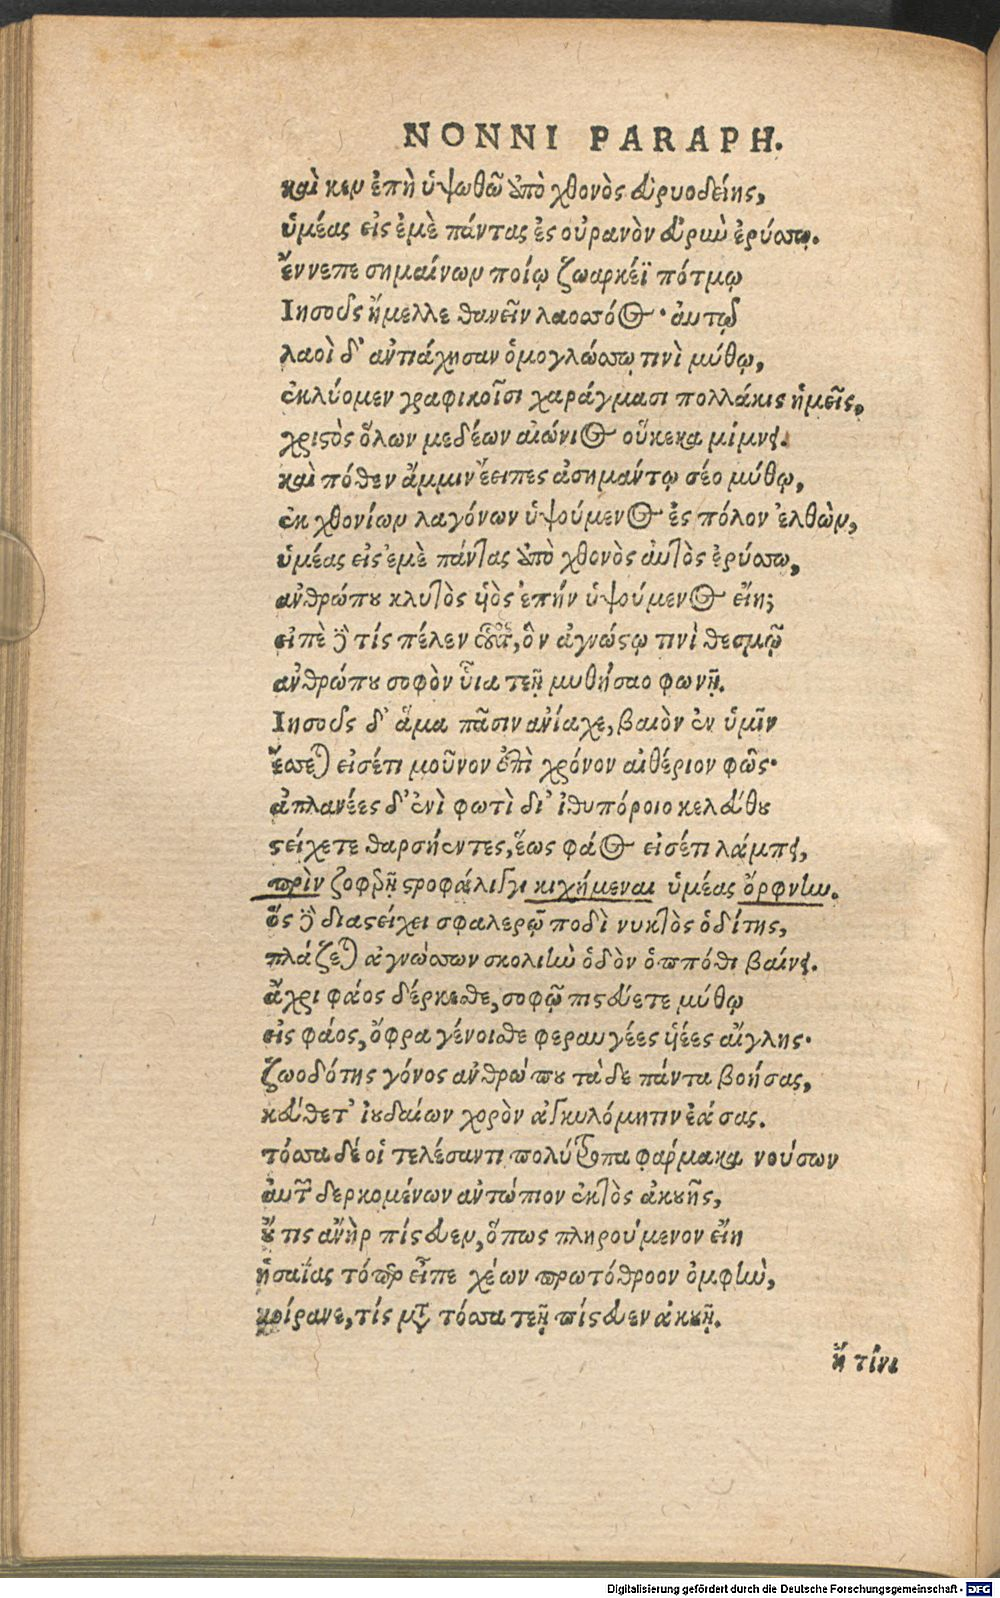 NONNI PARAPH.
καὶ κεν ἐπὴν ὑψωθῶ ὑπὸ χθονὸς εὐρυοδείης,
ὑμέας εἰς ἐμὲ πάντας ἐς οὐρανὸν εὐρὺν ἐρύσσω.
ἔννεπε σημαίνων ποίῳ ζωαρκέϊ πότμῳ
Ἰησοῦς ἤμελλε θανεῖν λαοσσόος· αὐτῷ
λαοὶ δ' ἀντιάχησαν ὁμογλώσσῳ τινὶ μύθῳ,
ἐκλύομεν γραφικοῖσι χαράγμασι πολλάκις ἡμεῖς,
χριστὸς ὅλων μεδέων αἰώνιος οὕνεκα μίμνει.
καὶ πόθεν ἄμμιν ἔειπες ἀσημάντῳ σέο μύθῳ,
ἐκ χθονίων λαγόνων ὑψούμενος ἐς πόλον ἐλθὼν,
ὑμέας εἰς ἐμὲ πάντας ὑπὸ χθονὸς αὐτὸς ἐρύσσω,
ἀνθρώπου κλυτὸς υἱὸς ἐπήν ὑψούμενος εἴη;
εἰπὲ γὰρ τίς πέλεν οὗτος, ὃν ἀγνώστῳ τινὶ θεσμῷ
ἀνθρώπου σοφὸν υἷα τεῇ μυθήσαο φωνῇ.
Ἰησοῦς δ' ἅμα πᾶσιν ἀνίαχε, βαιὸν ἐν ὑμῖν
ἔσσεται εἰσέτι μοῦνον ἐπὶ χρόνον αἰθέριον φῶς·
ἀπλανέες δ' ἐνὶ φωτὶ δι' ἰθυπόροιο κελεύθου
στείχετε θαρσήεντες, ἕως φάος εἰσέτι λάμπει,
πρὶν ζοφερῇ στροφάλιγγι κιχήμεναι ὑμέας ὄρφνην.
ὅς γὰρ διαστείχει σφαλερῷ ποδὶ νυκτὸς ὁδίτης,
πλάζεται ἀγνώσσων σκολιὴν ὁδὸν ὁππόθι βαίνει.
ἄχρι φάος δέρκεσθε, σοφῷ πιστεύετε μύθῳ
εἰς φάος, ὄφρα γένοισθε φεραυγέες υἱέες αἴγλης·
ζωοδότης γόνος ἀνθρώπου τάδε πάντα βοήσας,
κεύθετ' ἰουδαίων χορὸν ἀγκυλόμητιν ἐάσας.
τόσσα δέ οἱ τελέσαντι πολύτροπα φάρμακα νούσων
αὐτῶν δερκομένων ἀντώπιον ἐκτὸς ἀκουῆς,
οὔ τις ἀνὴρ πίστευεν, ὅπως πληρούμενον εἴη
ἡσαΐας τόπερ εἶπε χέων πρωτόθροον ὀμφὴν,
κοίρανε, τίς μετὰ τόσσα τεῇ πίστευεν ἀκουῇ.
ἢ τίνι
Digitalisierung gefördert durch die Deutsche Forschungsgemeinschaft - DFG